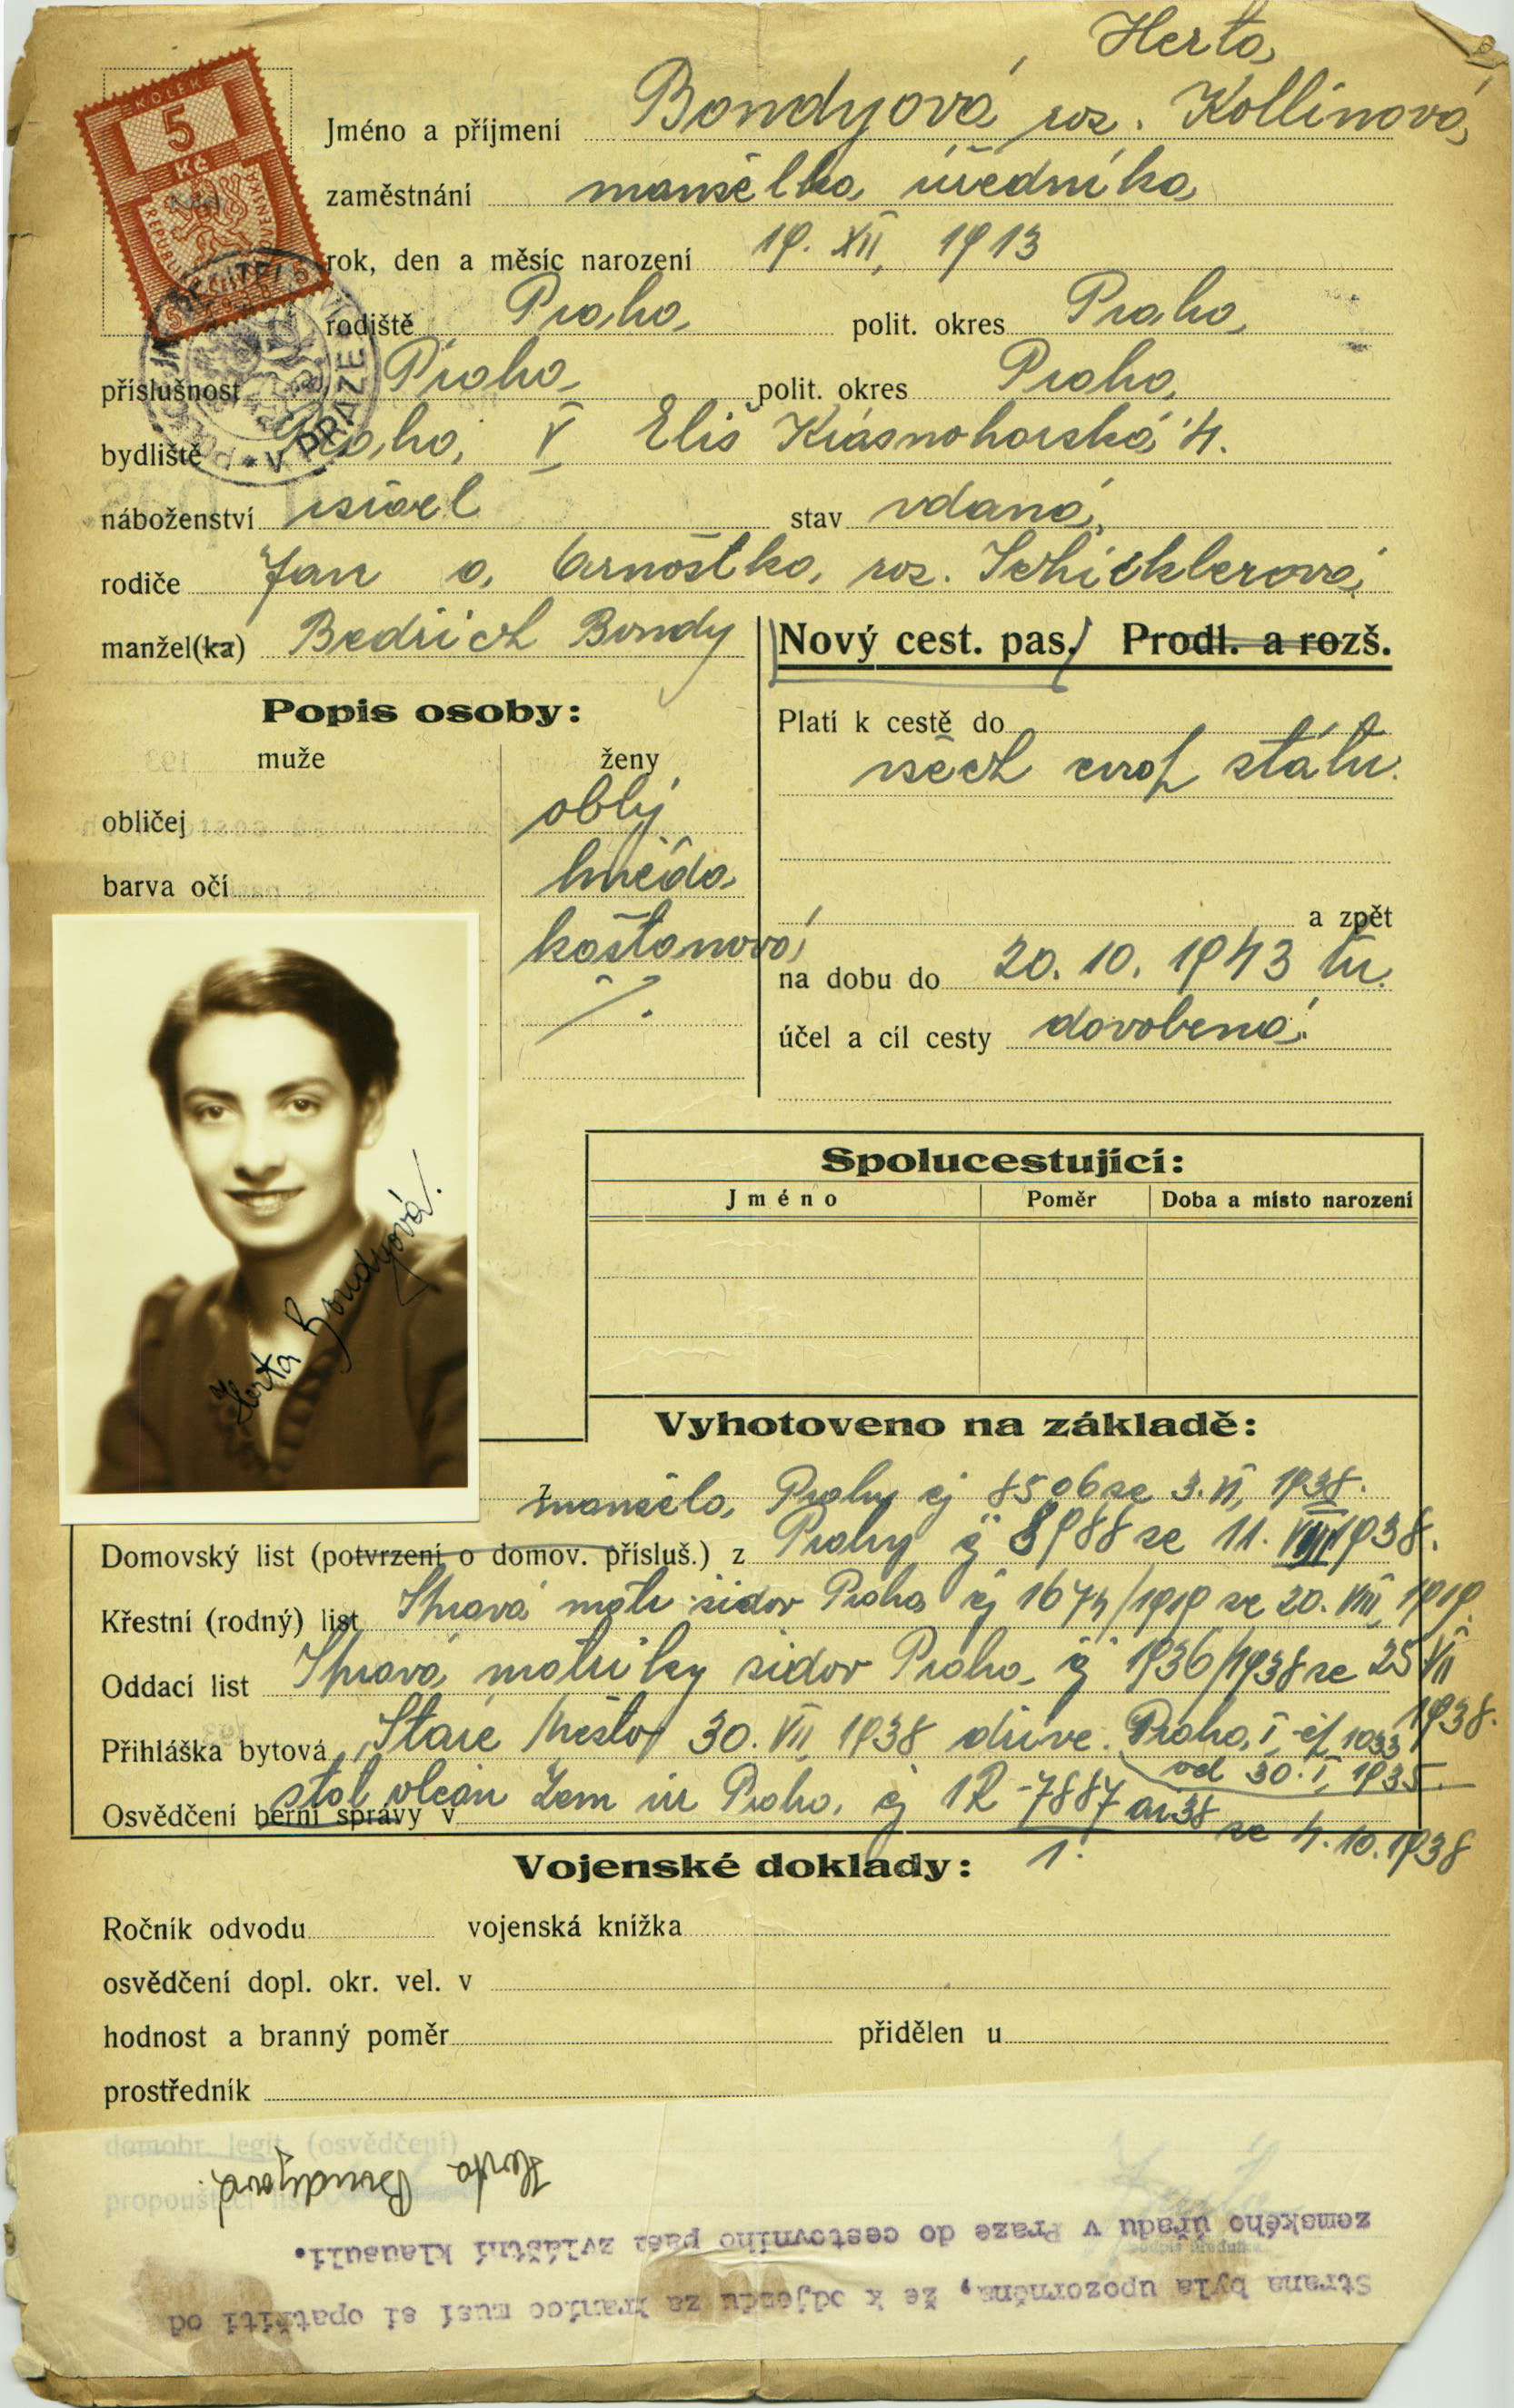 Herta
Jméno a příjmení Bondyová, roz. Kollinová
KOLEK
5
Kč
zaměstnání manželka úředníka
rok, den a měsíc narození 19. XII. 1913
rodiště Praha polit. okres Praha
příslušnost Praha polit. okres Praha
V PRAZE
bydliště Praha V Eliš Krásnohorská 4.
náboženství israel stav vdaná
rodiče Jan a Arnoštka roz. Schicklerová
manžel(ka) Bedřich Bondy
Nový cest. pas. Prodl. a rozš.
Popis osoby:
Platí k cestě do
muže ženy
všech evrop států
obličej oblý
barva očí hnědá
a zpět
kaštanová
na dobu do 20. 10. 1943 tu.
./.
účel a cíl cesty dovolená
Herta Bondyová.
Spolucestující:
Jméno Poměr Doba a místo narození
Vyhotoveno na základě:
z manžela Prahy čj 8506 ze 3. VI. 1938.
Domovský list (potvrzení o domov. přísluš.) z Prahy čj 8988 ze 11. VIII 1938.
Křestní (rodný) list Správa matr židov Praha čj 1674/1919 ze 20. VIII. 1919.
Oddací list Správa matriky židov Praha čj 1936/1938 ze 25 VII
1938.
Přihláška bytová Staré Město 30. VII. 1938 dříve Praha I, čp 1033
od 30. I. 1935.
Osvědčení berní správy v stát občan Zem úř Praha čj 1R-7887 ai 38
1. ze 4. 10. 1938
Vojenské doklady:
Ročník odvodu vojenská knížka
osvědčení dopl. okr. vel. v
hodnost a branný poměr přidělen u
prostředník
domobr. legit. (osvědčení)
propouštěcí list
Herta Bondyová.
Strana byla upozorněna, že k odjezdu za hranice musí si opatřiti od
zemského úřadu v Praze do cestovního pasu zvláštní klausuli.